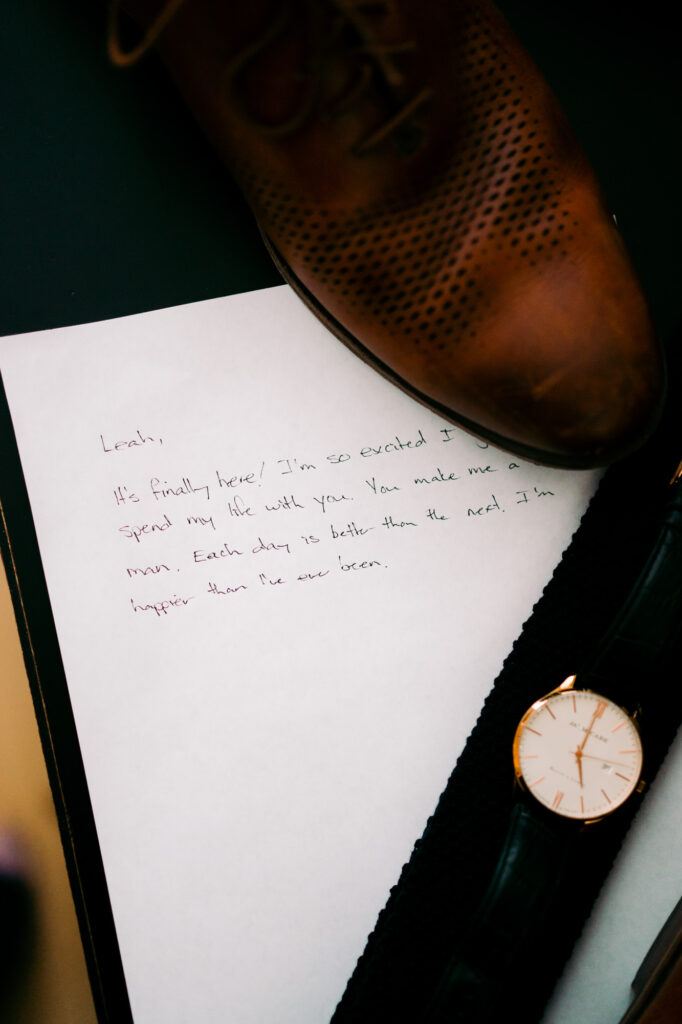 Leah,
It's finally here! I'm so excited I
spend my life with you. You make me a
man. Each day is better than the next. I'm
happier than I've ever been.